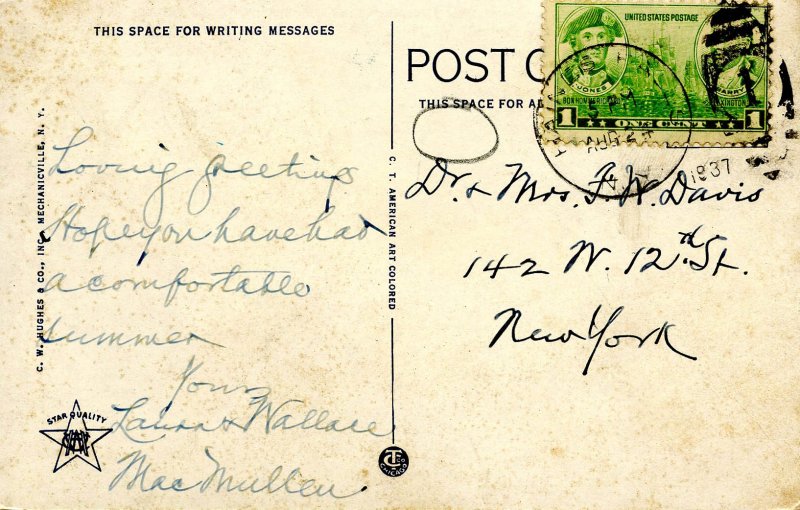 THIS SPACE FOR WRITING MESSAGES
Loving greetings
Hope you have had
a comfortable
summer
Yours
Laura & Wallace
MacMullen.
C. W. HUGHES & CO., INC., MECHANICVILLE, N. Y.
STAR QUALITY
C. T. AMERICAN ART COLORED
CTCO
CHICAGO
POST C
THIS SPACE FOR AD
UNITED STATES POSTAGE
JONES
BARRY
BON HOMME RICHARD
LEXINGTON
1 ONE CENT 1
5 PM
AUG 24
1937
Dr. & Mrs. F. W. Davis
142 W. 12th St.
New York